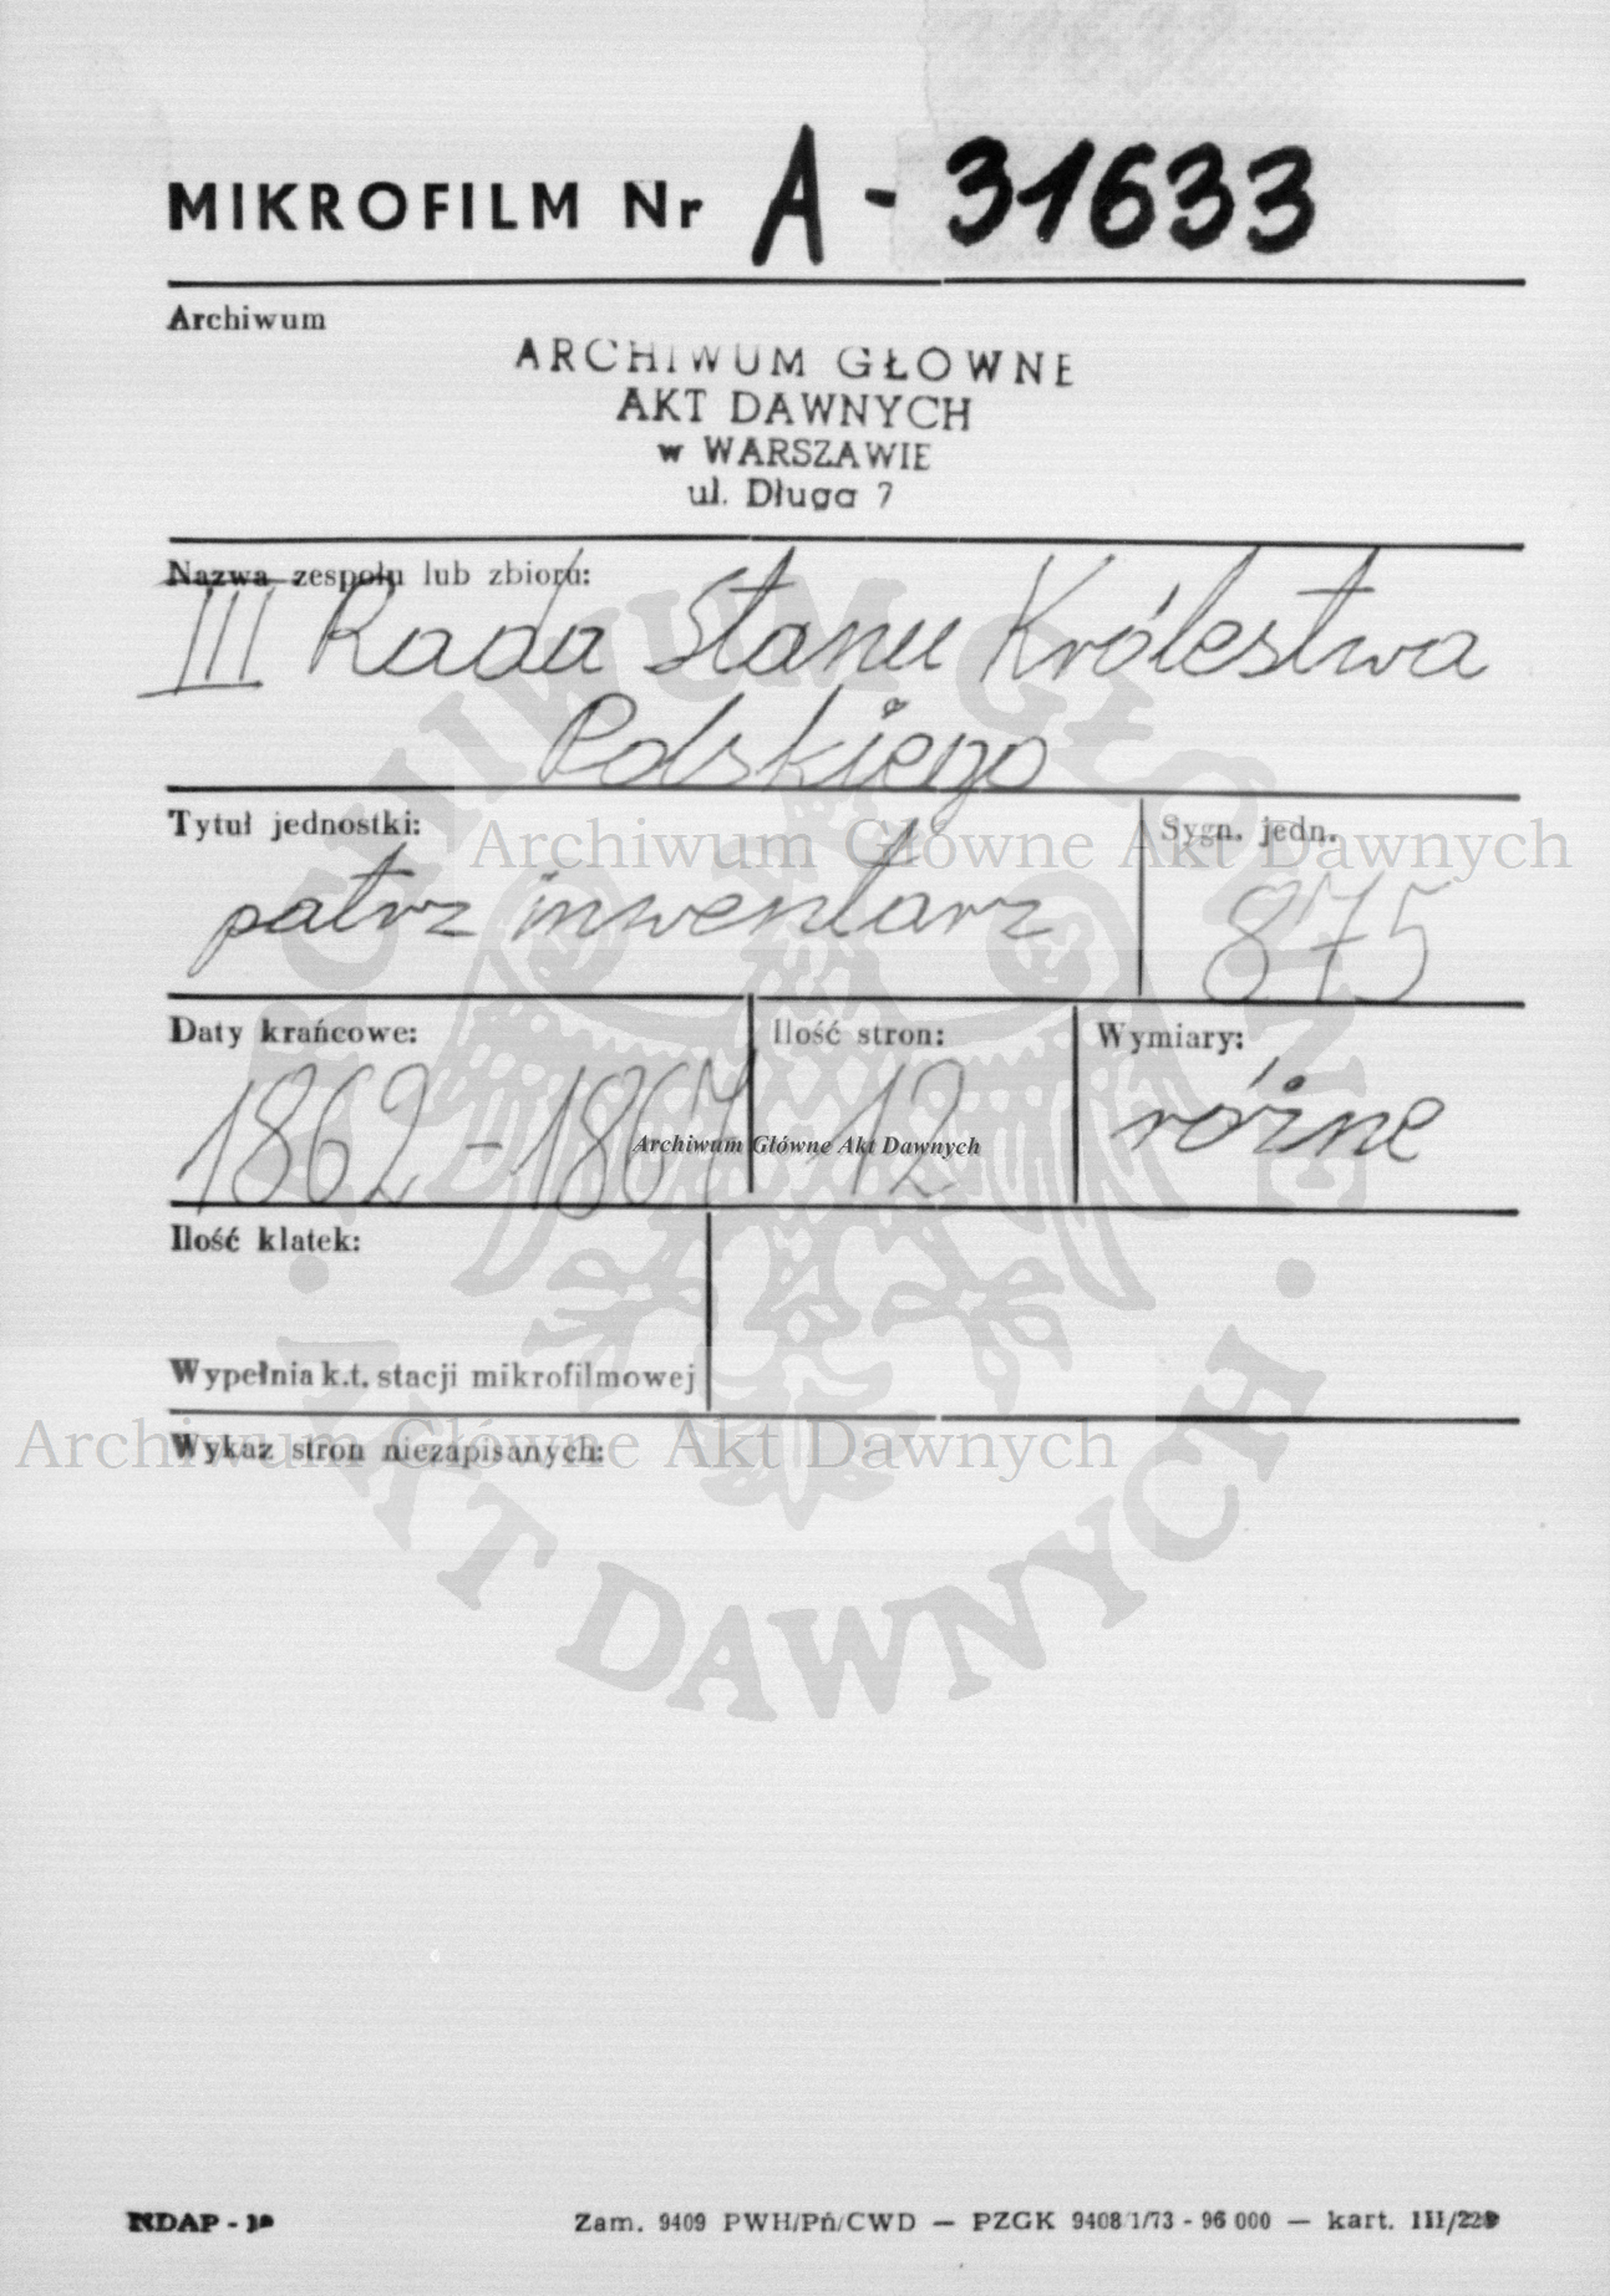 MIKROFILM Nr A - 31633
Archiwum
ARCHIWUM GŁOWNE
AKT DAWNYCH
w WARSZAWIE
ul. Długa 7
Nazwa zespołu lub zbioru:
III Rada Stanu Królestwa
Polskiego
Tytuł jednostki:
Sygn. jedn.
Archiwum Główne Akt Dawnych
patrz inwentarz
875
Daty krańcowe:
Ilość stron:
Wymiary:
1862-1867
12
różne
Archiwum Główne Akt Dawnych
Ilość klatek:
Wypełnia k.t. stacji mikrofilmowej
Wykaz stron niezapisanych:
Archiwum Główne Akt Dawnych
ARCHIWUM GŁÓWNE
· AKT DAWNYCH ·
NDAP -
Zam. 9409 PWH/Pń/CWD — PZGK 9408/1/73 - 96 000 — kart. III/